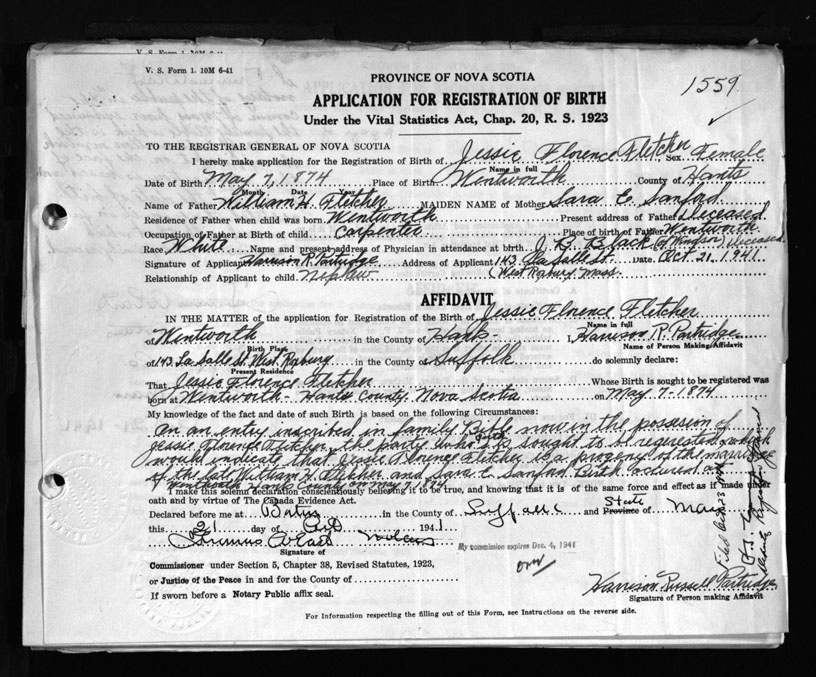 V. S. Form 1. 10M 6-41
PROVINCE OF NOVA SCOTIA
1559
APPLICATION FOR REGISTRATION OF BIRTH
Under the Vital Statistics Act, Chap. 20, R. S. 1923
TO THE REGISTRAR GENERAL OF NOVA SCOTIA
I hereby make application for the Registration of Birth of Jessie Florence Fletcher Sex Female
Name in full
Date of Birth May 7, 1874 Place of Birth Wentworth County of Hants
Month Date Year
Name of Father William H. Fletcher MAIDEN NAME of Mother Sara E. Sanford
Residence of Father when child was born Wentworth Present address of Father Deceased
Occupation of Father at Birth of child Carpenter Place of birth of Father Wentworth
Race White Name and present address of Physician in attendance at birth J. B. Black (of Windsor) Deceased
Signature of Applicant Harrison R. Partridge Address of Applicant 143 La Salle St. Date Oct 21, 1941
Relationship of Applicant to child Nephew (West Roxbury Mass.
AFFIDAVIT
IN THE MATTER of the application for Registration of the Birth of Jessie Florence Fletcher
Name in full
of Wentworth in the County of Hants I, Harrison R. Partridge
Birth Place Name of Person Making Affidavit
of 143 La Salle St West Roxbury in the County of Suffolk do solemnly declare:
Present Residence
That Jessie Florence Fletcher Whose Birth is sought to be registered was
born at Wentworth - Hants County Nova Scotia on May 7 - 1874
My knowledge of the fact and date of such Birth is based on the following Circumstances:
On an entry inscribed in family Bible now in the possesion of
Jessie Florence Fletcher, the party who birth is sought to be regerested, which
would indicate that Jessie Florence Fletcher is a progeny of the marriage
of the late William H. Fletcher and Sara E. Sanford Birth occured at
Wentworth Hants County on May 7, 1874
I make this solemn declaration conscientiously believing it to be true, and knowing that it is of the same force and effect as if made under
oath and by virtue of The Canada Evidence Act.
Declared before me at Boston in the County of Suffolk and State Province of Mass
this 21 day of Oct 1941
My commission expires Dec. 4, 1941
Signature of
Commissioner under Section 5, Chapter 38, Revised Statutes, 1923,
or Justice of the Peace in and for the County of
If sworn before a Notary Public affix seal.
Harrison Russell Partridge
Signature of Person making Affidavit
For Information respecting the filling out of this Form, see Instructions on the reverse side.